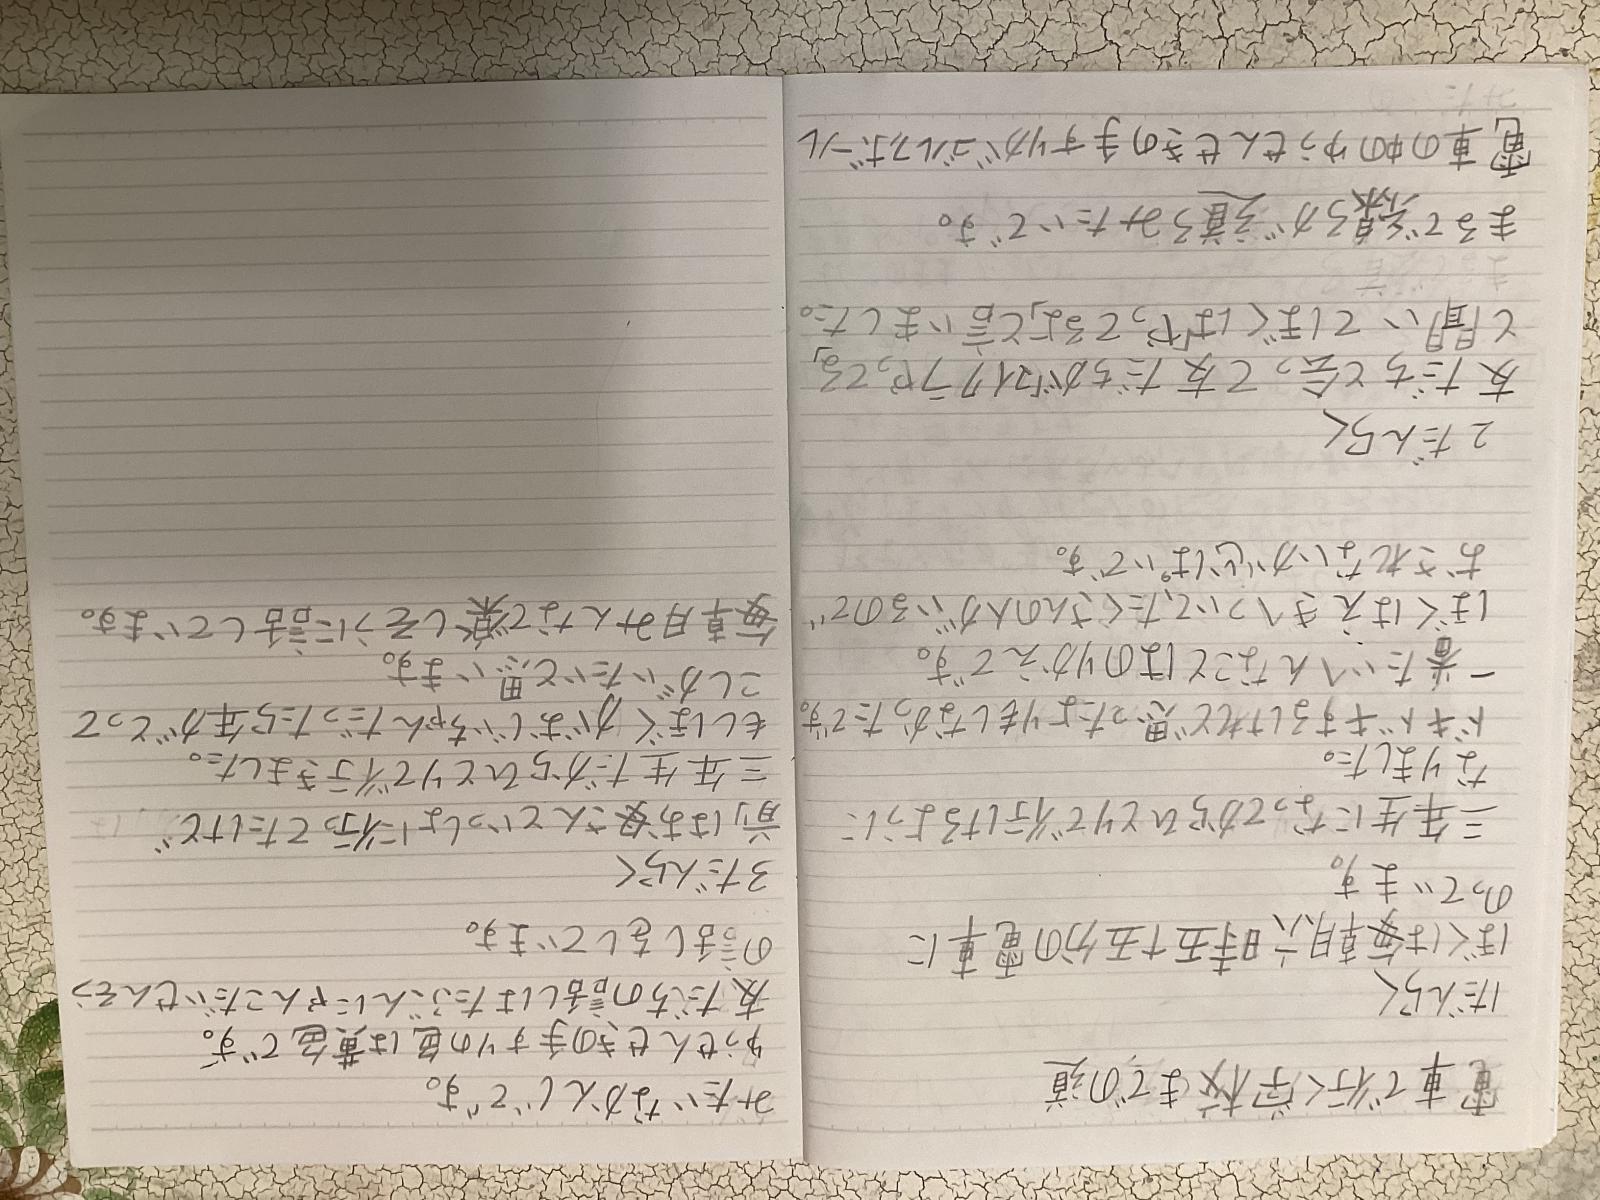 電車で行く学校までの道
1だんらく
ぼくは毎朝六時五十五分の電車に
のっています。
三年生になってからひとりで行けるように
なりました。
ドキドキするけれど思ったよりもしなかったです。
一番たいへんなことはのりかえです。
ぼくはえきへついて、たくさんの人がいるので
おされないか心ぱいです。
2だんらく
友だちと会って友だちが「マイクラやってる」
と聞いてぼくは「やってるよ」と言いました。
まるで線ろが道ろみたいです。
電車の中のゆうせんせきの手すりがゴルフボール
みたいなかんじです。
ゆうせんせきの手すりの色は黄色です。
友だちの話しはたぶんにゃんこだいせんそう
の話しをしています。
3だんらく
前はお母さんといっしょに行ってたけど
三年生だからひとりで行きました。
もしぼくがおじいちゃんだったら年がとって
こしがいたいと思います。
毎朝みんなで楽しそうに話しています。